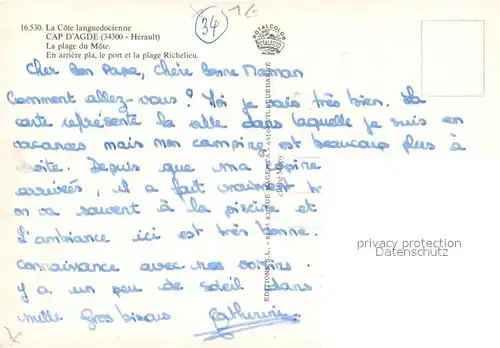 34
1€
16.530. La Côte languedocienne
CAP D'AGDE (34300 - Hérault)
La plage du Môle.
En arrière pla, le port et la plage Richelieu.
ROYALCOLOR
Cher Bon Papa, Chère Bonne Maman
Comment allez-vous ? Moi je vais très bien. La
carte représente la ville dans laquelle je suis en
vacances mais mon camping est beaucoup plus à
droite. Depuis que ma
arrivées, il a fait vraiment
on va souvent à la piscine et
L'ambiance ici est très bonne.
connaissance avec nos voisins
y a un peu de soleil dans
mille Gros bisous Catherine
privacy protection
Datenschutz